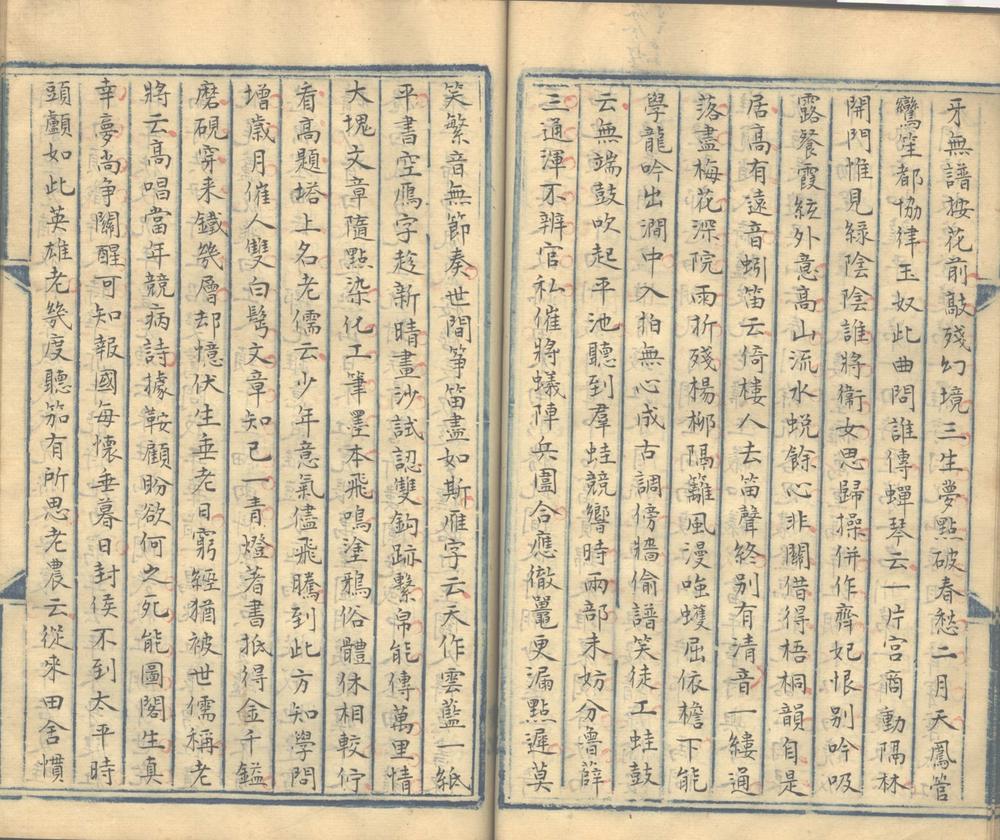 牙無譜按花前敲殘幻境三生夢點破春愁二月天鳳管
鸞笙都協律玉奴此曲問誰傳蟬琴云一片宮商動隔林
開門惟見綠陰陰誰將衞女思歸操併作齊妃恨別吟吸
露餐霞絃外意高山流水蜕餘心非關借得梧桐韻自是
居高有遠音蚓笛云倚樓人去笛聲終別有清音一縷通
落盡梅花深院雨折殘楊柳隔籬風漫嗤蠖屈依檐下能
學龍吟出澗中入拍無心成古調傍牆偷譜笑徒工蛙鼓
云無端鼓吹起平池聽到羣蛙競響時兩部未妨分魯薛
三通渾不辨官私催將蟻陣兵圍合應徹鼉更漏點遲莫
笑繁音無節奏世間箏笛盡如斯雁字云天作雲藍一紙
平書空鴈字趁新晴畫沙試認雙鈎跡繫帛能傳萬里情
大塊文章隨點染化工筆墨本飛鳴塗鴉俗體休相較佇
看高題塔上名老儒云少年意氣儘飛騰到此方知學問
增歲月催人雙白鬢文章知己一青燈著書抵得金千鎰
磨硯穿來鐵幾層却憶伏生垂老日窮經猶被世儒稱老
將云高唱當年競病詩據鞍顧盼欲何之死能圖閣生真
幸夢尚争關醒可知報國每懷垂暮日封侯不到太平時
頭顱如此英雄老幾度聽笳有所思老農云從來田舍慣